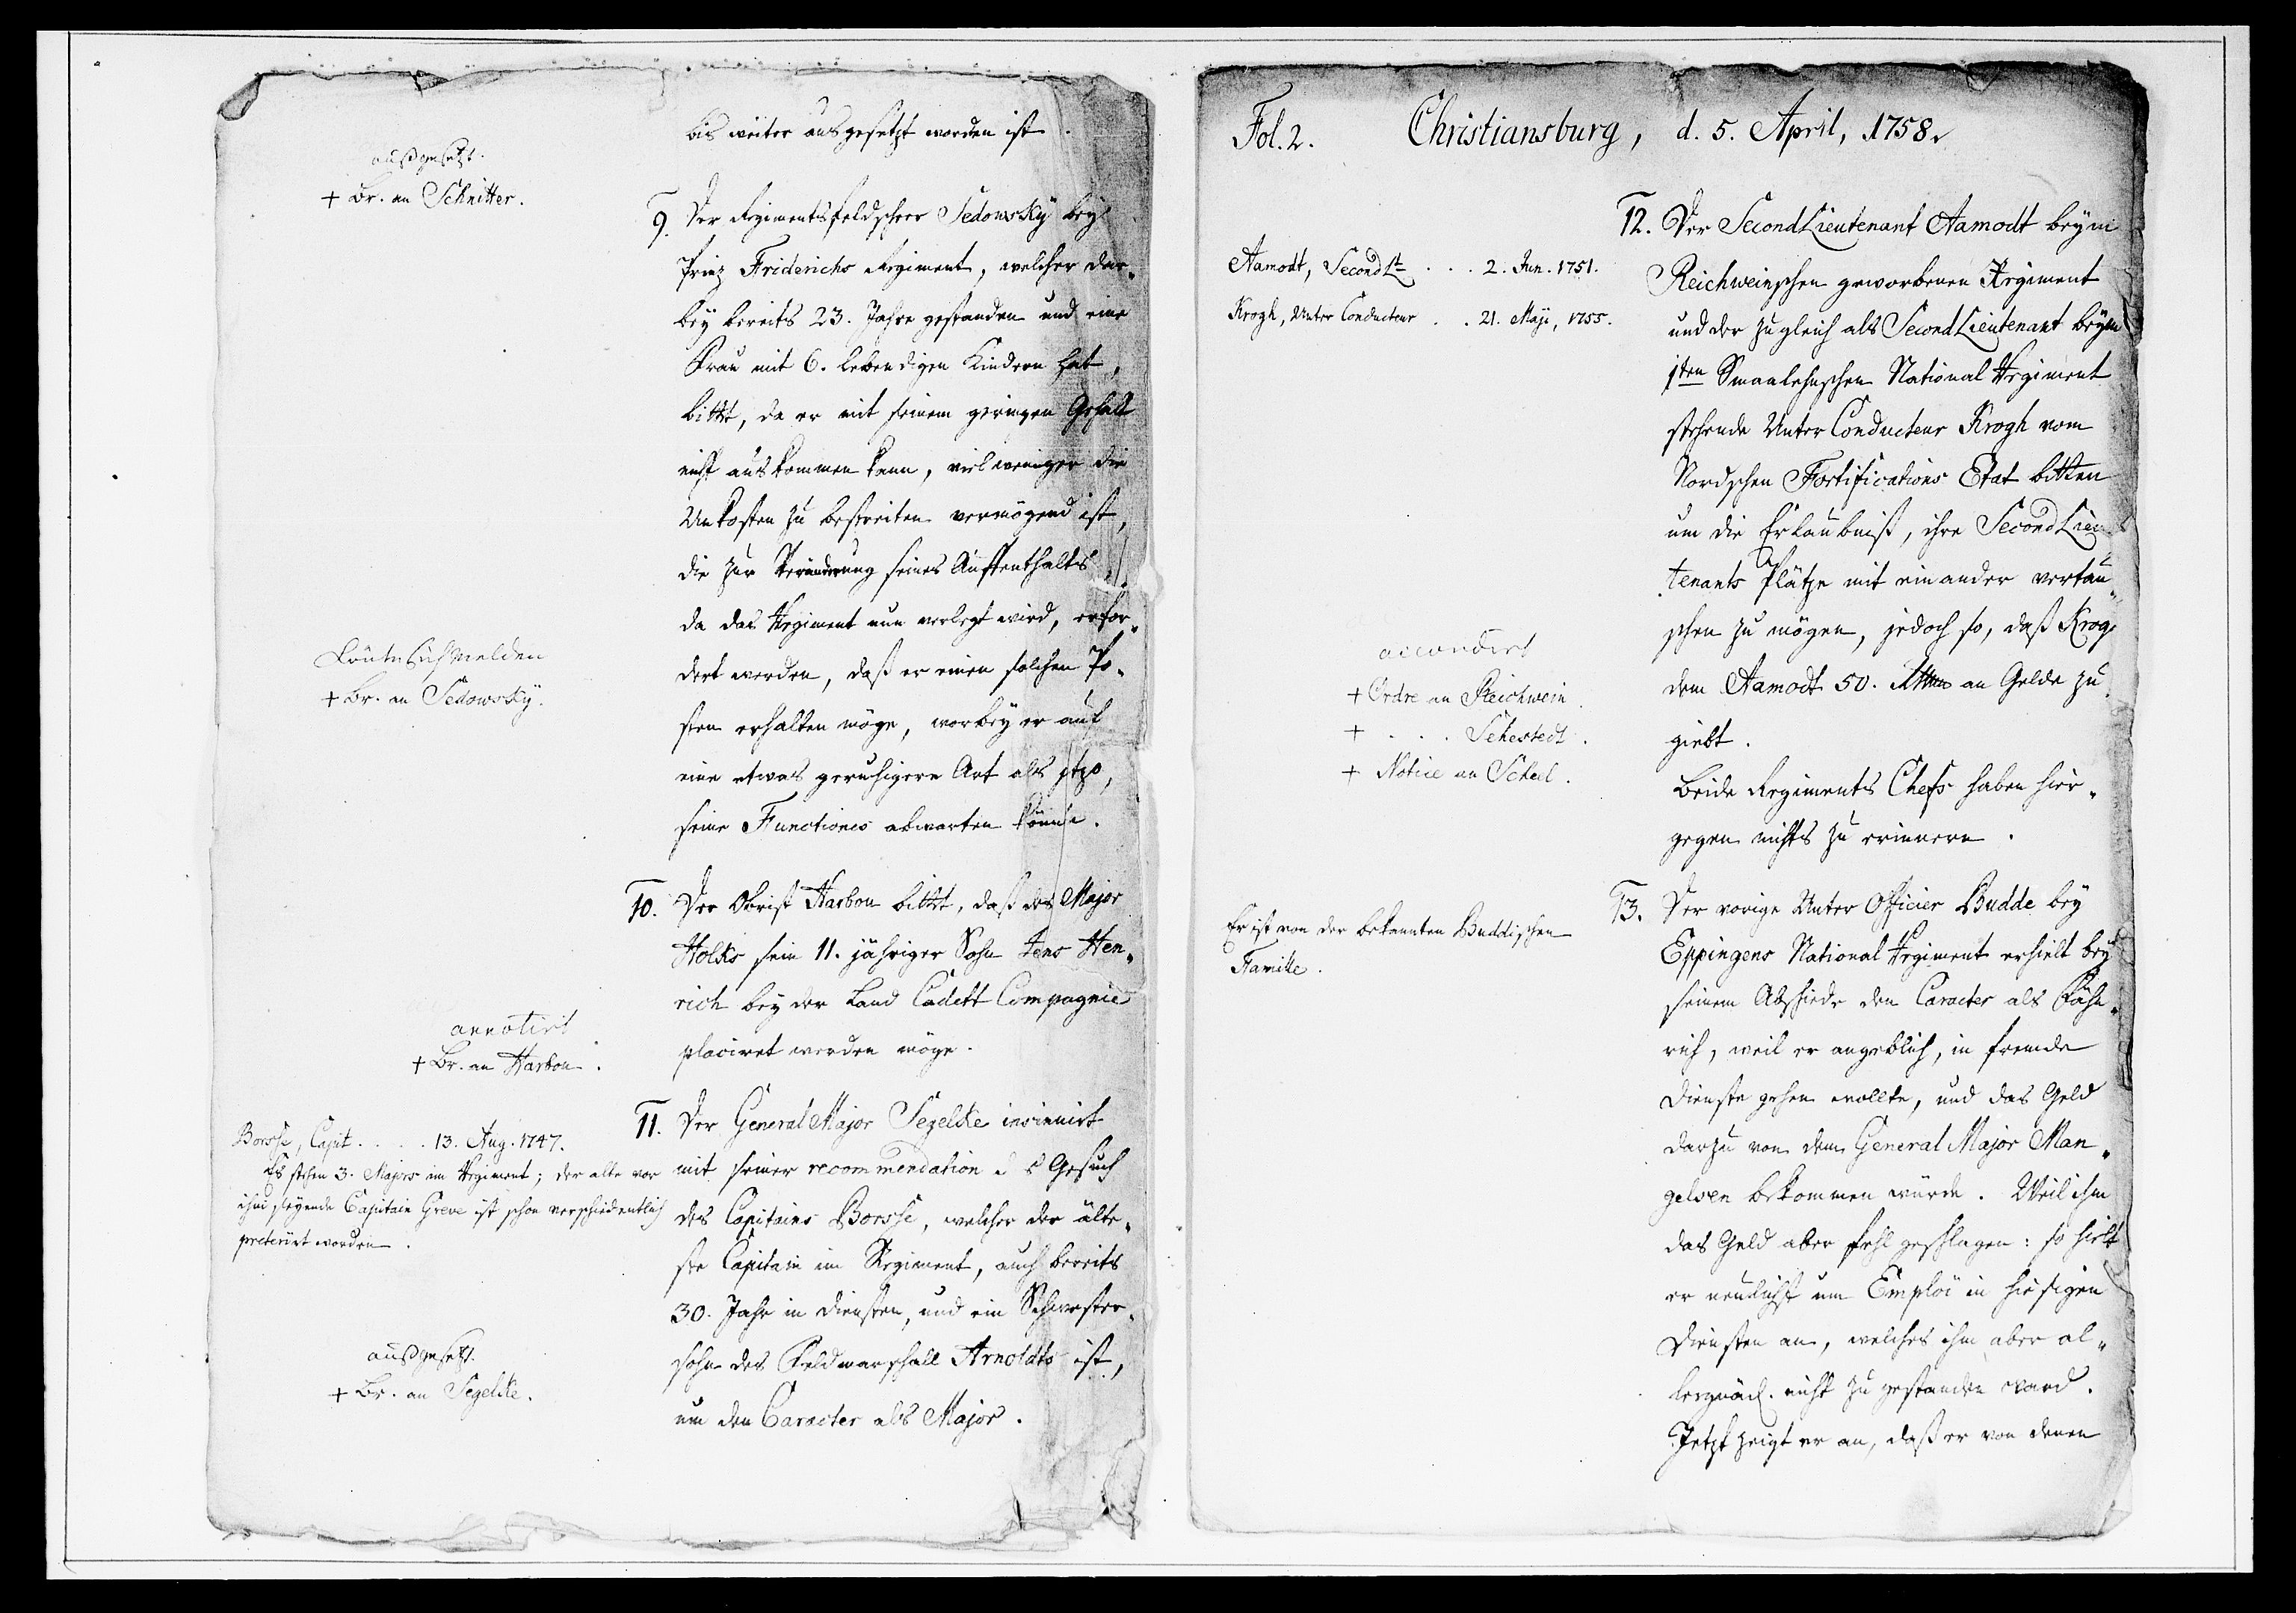 bis weiter ausgesetzt worden ist.
außgesetzt.
+ Br. an Schnitter.
9. Der Regimentsfeldscheer Sedowsky bey
Prinz Friderichs Regiment, welcher dar„
bey bereits 23. Jahre gestanden und eine
Frau mit 6. lebendigen Kindern hat,
bittet, da er mit seinem geringen Gehalt
nicht auskommen kann, viel weniger die
Unkosten zu bestreiten vermögend ist,
die zur Veränderung seines Auffenthalts,
da das Regiment nun verlegt wird, erfor„
dert werden, daß er einen solchen Po„
sten erhalten möge, worbey er auf
eine etwas geruhigere Art als jtzo,
seine Functiones abwarten könne.
Könte sich melden
+ Br. an Sedowsky.
10. Der Obrist Harbou bittet, daß des Major
Holks sein 11. jähriger Sohn Jens Hen„
rich bey der Land Cadett Compagnie
placiret werden möge.
annotirt
+ Br. an Harbou.
11. Der General Major Segelcke insinuirt
mit seiner recommendation das Gesuch
des Capitains Borsse, welcher der älte„
ste Capitain im Regiment, auch bereits
30. Jahr in Diensten, und ein Schwester„
sohn des Feldmarschall Arnoldts ist,
um den Caracter als Major.
Borsse, Capit. . . . 13. Aug. 1747.
Es stehen 3. Majors im Regiment; der alte vor
ihm stehende Capitain Greve ist schon verschiedentlich
preterirt worden.
außgesetzt.
+ Br. an Segelcke.
Fol. 2. Christiansburg, d. 5. April, 1758.
12. Der SecondLieutenant Aamodt beym
Reichweinschen geworbenen Regiment
und der zugleich als SecondLieutenant beym
1ten Smaalehnschen National Regiment
stehende Unter Conducteur Krogh vom
Nordschen Fortifications Etat bitten
um die Erlaubniß, ihre SecondLieu
tenants Plätze mit einander vertau„
schen zu mögen, jedoch so, daß Krogh
dem Aamodt 50. an Gelde zu
giebt.
Beide Regiments Chefs haben hier„
gegen nichts zu erinnern.
Aamodt, SecondLt . . . 2. Jun. 1751.
Krogh, Unter Conducteur . . 21. Maji, 1755.
accordirt
+ Ordre an Reichwein.
+ . . . Sehestedt.
+ Notice an Scheel.
13. Der vorige Unter Officier Budde bey
Eppingens National Regiment erhielt bey
seinem Abschiede den Caracter als Fähn„
rich, weil er angeblich, in fremde
Dienste gehen wollte, und das Geld
darzu von dem General Major Man„
gelsen bekommen würde. Weil ihm
das Geld aber fehl geschlagen: so hielt
er neulichst um Emploi in hiesigen
Diensten an, welches ihm aber al„
lergnäd. nicht zugestanden ward.
Jetzt zeigt er an, daß er von denen
Er ist von der bekannten Buddischen
Familie.